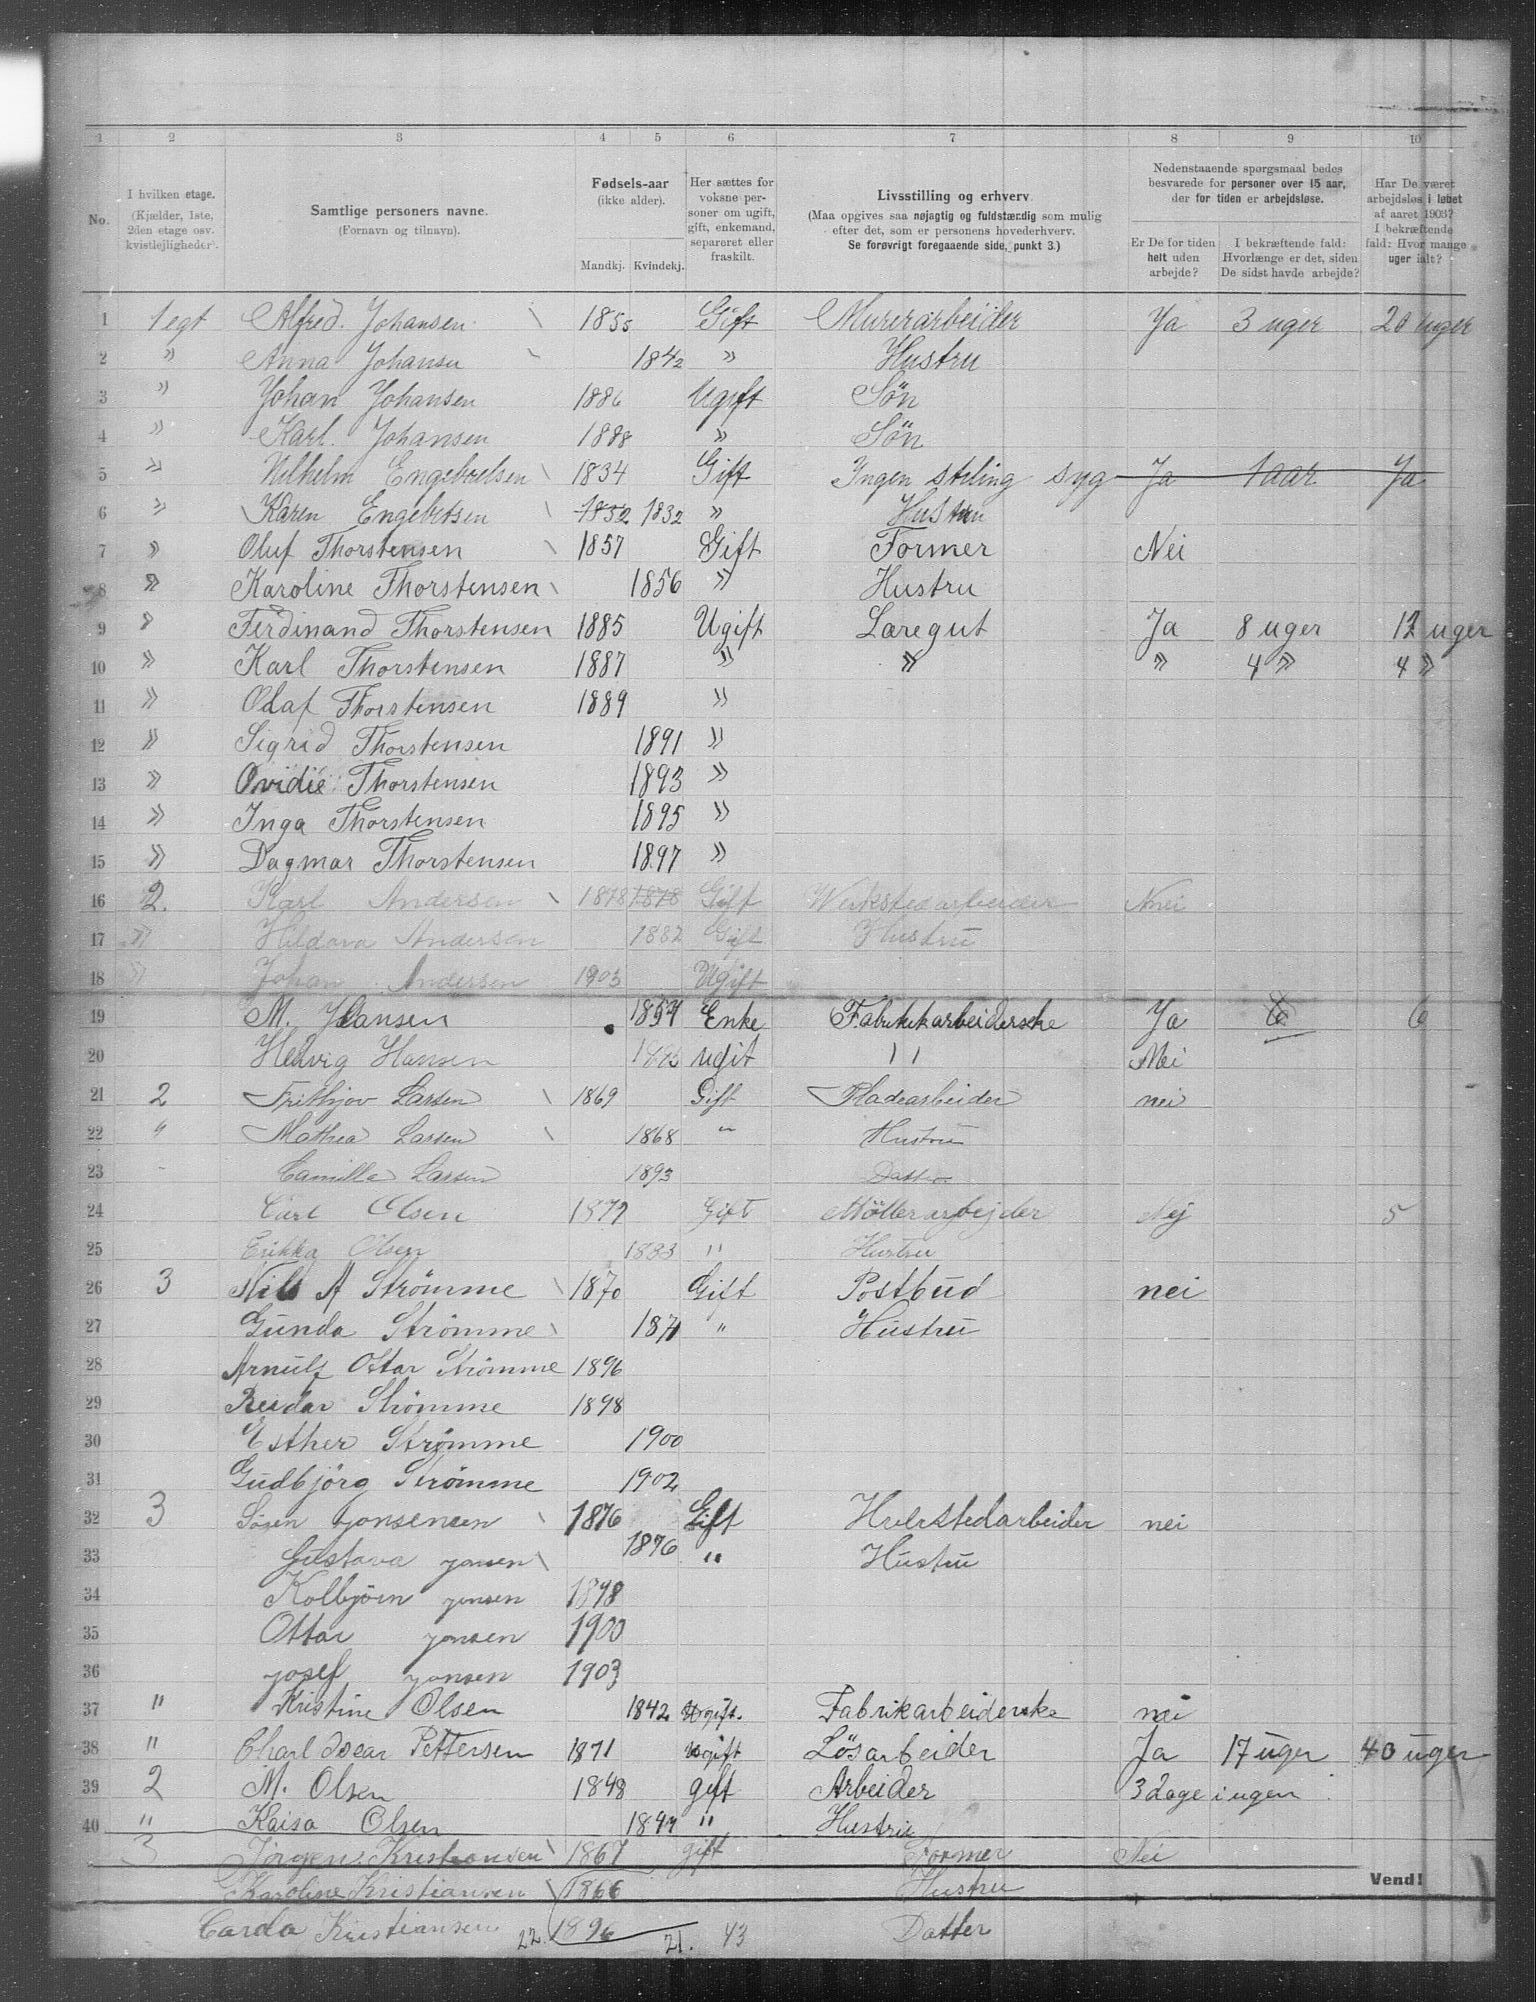 1 2 3 4 5 6 7 8 9 10
No. I hvilken etage. (Kjælder, 1ste, 2den etage osv. kvistleiligheder). Samtlige personers navne. (Fornavn og tilnavn). Fødsels-aar (ikke alder). Mandkj. Kvindekj. Her sættes for voksne personer om ugift, gift, enkemand, separeret eller fraskilt. Livsstilling og erhverv. (Maa opgives saa nøjagtig og fuldstændig som mulig efter det, som er personens hovederhverv. Se forøvrigt foregaaende side, punkt 3.) Nedenstaaende spørgsmaal bedes besvarede for personer over 15 aar, der for tiden er arbejdsløse. Er De for tiden helt uden arbejde? I bekræftende fald: Hvorlænge er det, siden De sidst havde arbejde? Har De været arbejdsløs i løbet af aaret 1903? I bekræftende fald: Hvor mange uger ialt?
1 1 egt Alfred. Johansen 1855 Gift Murerarbeider Ja 3 uger 20 uger
2 " Anna Johansen 1842 " Hustru
3 " Johan Johansen 1886 Ugift Søn
4 " Karl. Johansen 1888 " Søn
5 " Vilhelm Engebretsen 1834 Gift Ingen stiling syg Ja 1 aar Ja
6 " Karen Engebretsen 1832 1832 " Hustru
7 " Oluf Thorstensen 1857 Gift Former Nei
8 " Karoline Thorstensen 1856 " Hustru
9 " Ferdinand Thorstensen 1885 Ugift Læregut Ja 8 uger 12 uger
10 " Karl Thorstensen 1887 " " " 4 " 4 "
11 " Olaf Thorstensen 1889 "
12 " Sigrid Thorstensen 1891 "
13 " Ovidie Thorstensen 1893 "
14 " Inga Thorstensen 1895 "
15 " Dagmar Thorstensen 1897 "
16 2. Karl Andersen 1878 1878 Gift Verkstedarbeider Nei
17 " Hildava Andersen 1882 Gift Hustru
18 " Johan Andersen 1903 Ugift
19 M. Hansen 1854 Enke Fabrikkarbeiderske Ja 6 6
20 Hedvig Hansen ugit " Nei
21 2 Frithjov Larsen 1869 Gift Pladearbeider nei
22 " Mathea Larsen 1868 " Hustru
23 Camilla Larsen 1893 Datter
24 Carl Olsen 1877 Gift Møllerarbejder Nej 5
25 Erikka Olsen 1883 " Hustru
26 3 Nils A Strømme 1870 Gift Postbud nei
27 Gunda Strømme 1871 " Hustru
28 Arnulf Ottar Strømme 1896
29 Reidar Strømme 1898
30 Esther Strømme 1900
31 Gudbjörg Strømme 1902
32 3 Søren 1876 Gift nei
33 Gustava jonsen 1876 " Hustru
34 Kolbjörn jonsen 1898
35 Ottar jonsen 1900
36 josef jonsen 1903
37 " Kristine Olsen 1842 Ugift. Fabrikarbeiderske nei
38 " Charl Oscar Pettersen 1871 ugift Løsarbeider Ja 17 uger 40 uger
39 2 M. Olsen 1848 gift Arbeider 3 dage i ugen
40 " Kaisa Olsen " Hustru
3 Jørgen Kristiansen 1867 gift Former Nei
Karoline Kristiansen 1866 Hustru
Vend!
Carda Kristiansen 1896 Datter
22. 21. 43